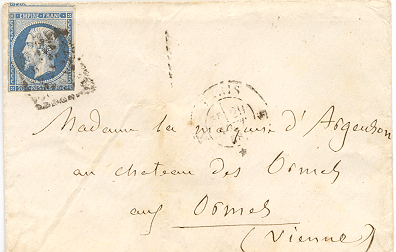 EMPIRE FRANC
Madame la marquise d'Argenson
au chateau des Ormes
aux Ormes
(Vienne)